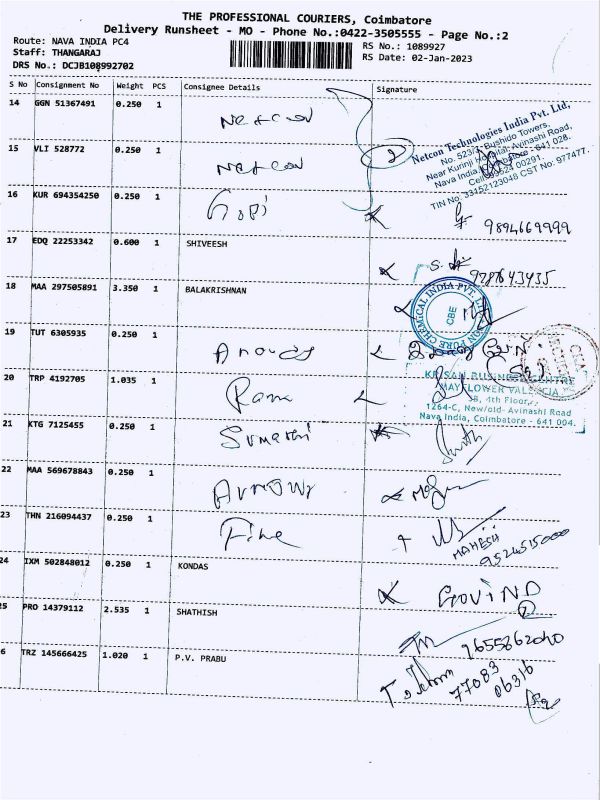 THE PROFESSIONAL COURIERS, Coimbatore
Delivery Runsheet - MO - Phone No.:0422-3505555 - Page No.:2
Route: NAVA INDIA PC4
RS No.: 1089927
Staff: THANGARAJ
RS Date: 02-Jan-2023
DRS No.: DCJB108992702
S No Consignment No Weight PCS Consignee Details Signature
14 GGN 51367491 0.250 1 Netcon
Netcon Technologies India Pvt. Ltd,
No. 523/1, Bushido Towers,
Near Kunnji Hospital, Avinashi Road,
Nava India, Coimbatore - 641 028.
Cell: 00291.
TIN No. 33152123048 CST No: 977477.
15 VLI 528772 0.250 1 Netcon 2
16 KUR 694354250 0.250 1 Gopi 9894669999
17 EDQ 22253342 0.600 1 SHIVEESH 9787643435
18 MAA 297505891 3.350 1 BALAKRISHNAN
PURE CHEMICAL INDIA PVT. CBE
19 TUT 6305935 0.250 1
20 TRP 4192705 1.035 1 Rama
KRISAN BUSINESS CENTRE
MAYFLOWER VALENCIA
4th Floor,
1264-C, New/old- Avinashi Road
Nava India, Coimbatore - 641 004.
21 KTG 7125455 0.250 1 Sumathi
22 MAA 569678843 0.250 1
23 THN 216094437 0.250 1 Fine
MAHESH
9524515000
24 IXM 502848012 0.250 1 KONDAS GOVIND
2
25 PRO 14379112 2.535 1 SHATHISH
9655862040
6 TRZ 145666425 1.020 1 P.V. PRABU
77083
06316